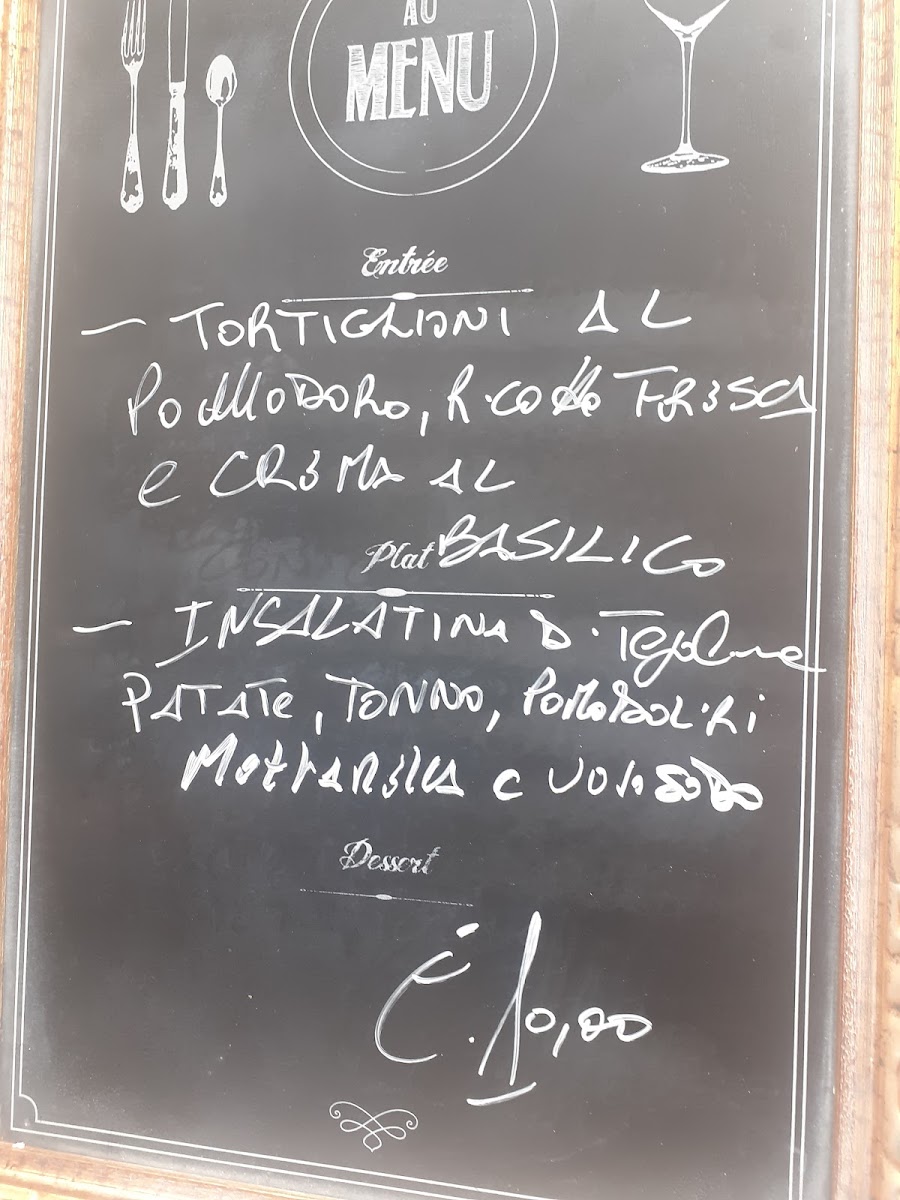 AU
MENU
Entrée
- TORTIGLIONI AL
POMODORO, RICOTTA FRESCA
e CREMA AL
BASILICO
Plat
- INSALATINA DI TEGOLINE
PATATE, TONNO, POMODOLIRI
MOZZARELLA e UOVO SODO
Dessert
€. 10,00